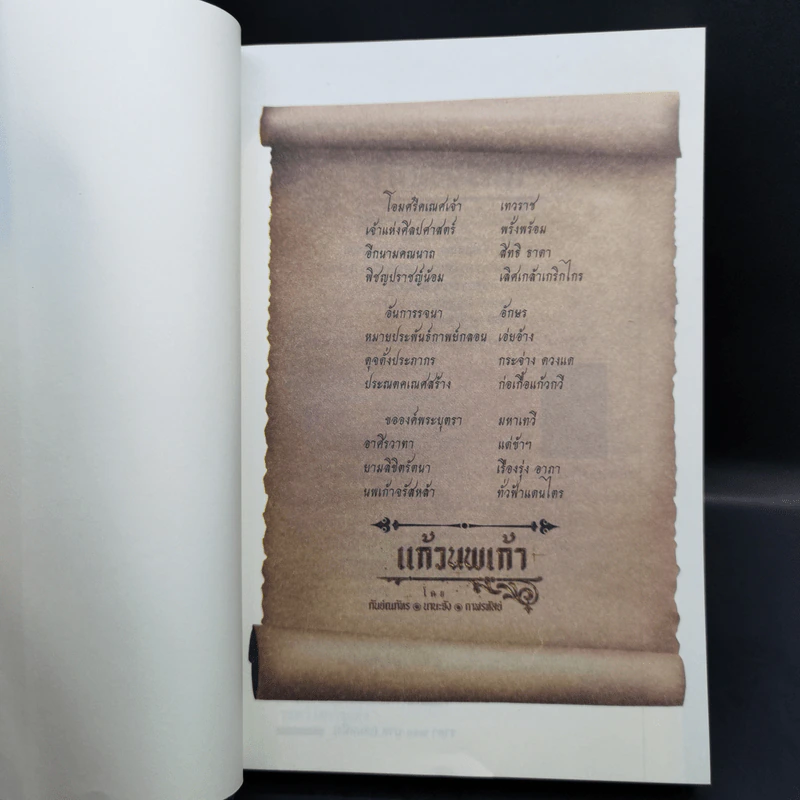 โอมศรีคเณศเจ้า เทวราช
เจ้าแห่งศิลปศาสตร์ พรั่งพร้อม
อีกนามคณนาถ สิทธิ ธาดา
พิชญปราชญ์น้อม เลิศเกล้าเกริกไกร
อันการรจนา อักษร
หมายประพันธ์กาพย์กลอน เอ่ยอ้าง
ดุจดั่งประภากร กระจ่าง ดวงแด
ประณตคเณศสร้าง ก่อเกื้อแก้วกวี
ขอองค์พระบุตรา มหาเทวี
อาศิรวาทา แด่ข้าฯ
ยามลิขิตรัตนา เรืองรุ่ง อาภา
นพเก้าจรัสหล้า ทั่วฟ้าแดนไตร
แก้วนพเก้า
โดย